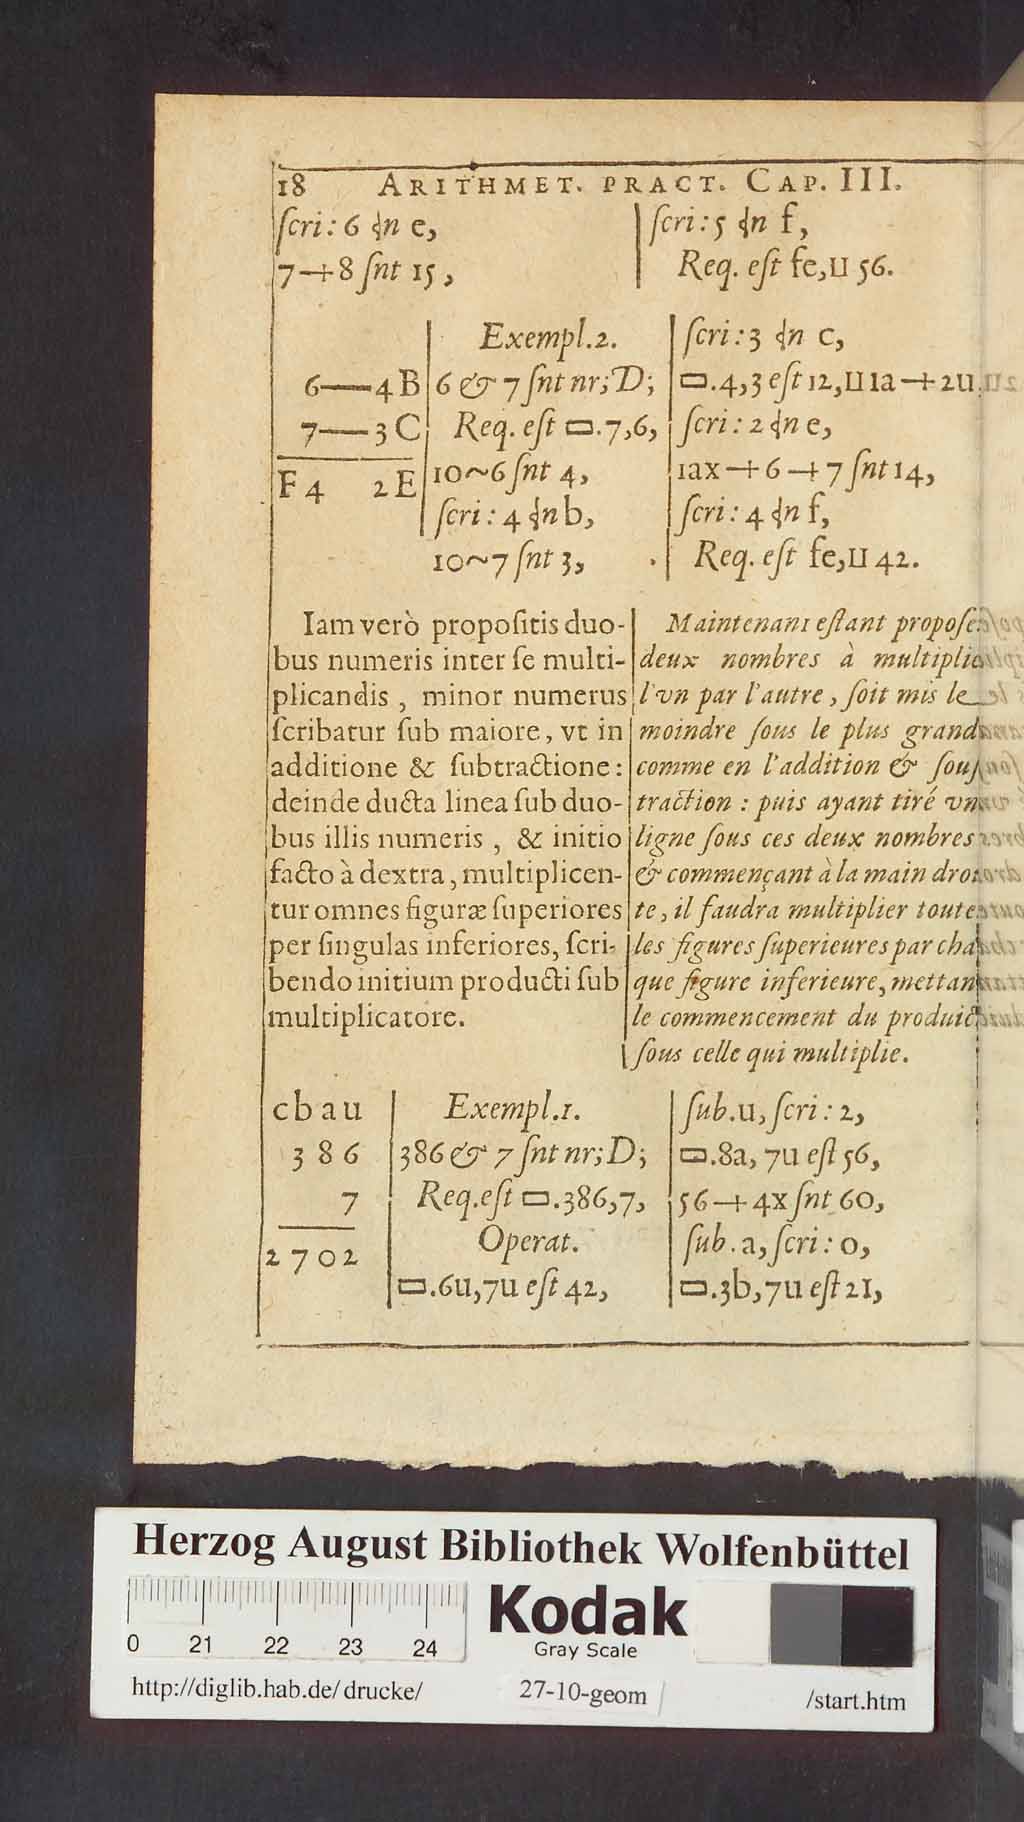 18 ARITHMET. PRACT. CAP. III.
ſcri: 6 ꞟn e,
7+8 ſnt 15,
ſcri: 5 ꞟn f,
Req. eſt fe, Ⅱ 56.
6—4 B
7—3 C
F 4 2 E
Exempl. 2.
6 & 7 ſnt nr; D;
Req. eſt ▭.7,6,
10~6 ſnt 4,
ſcri: 4 ꞟn b,
10~7 ſnt 3,
ſcri: 3 ꞟn c,
▭.4,3 eſt 12, Ⅱ 1a+2u
ſcri: 2 ꞟn e,
1ax+6+7 ſnt 14,
ſcri: 4 ꞟn f,
Req. eſt fe, Ⅱ 42.
Iam verò propoſitis duo-
bus numeris inter ſe multi-
plicandis, minor numerus
ſcribatur ſub maiore, vt in
additione & ſubtractione:
deinde ducta linea ſub duo-
bus illis numeris, & initio
facto à dextra, multiplicen-
tur omnes figuræ ſuperiores
per ſingulas inferiores, ſcri-
bendo initium producti ſub
multiplicatore.
Maintenant eſtant propoſe
deux nombres à multiplie
l'vn par l'autre, ſoit mis le
moindre ſous le plus grand
comme en l'addition & ſouſ
traction: puis ayant tiré vn
ligne ſous ces deux nombres
& commençant à la main droi
te, il faudra multiplier toute
les figures ſuperieures par cha
que figure inferieure, mettan
le commencement du produict
ſous celle qui multiplie.
c b a u
3 8 6
7
2 7 0 2
Exempl. 1.
386 & 7 ſnt nr; D;
Req. eſt ▭.386,7,
Operat.
▭.6u, 7u eſt 42,
ſub. u, ſcri: 2,
▭.8a, 7u eſt 56,
56+4x ſnt 60,
ſub. a, ſcri: 0,
▭.3b, 7u eſt 21,
Herzog August Bibliothek Wolfenbüttel
0 21 22 23 24
Kodak
Gray Scale
http://diglib.hab.de/drucke/ 27-10-geom /start.htm